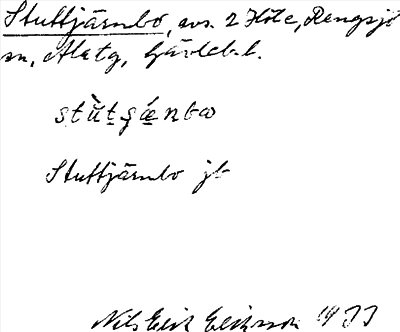 Stuttjärnbo, avs. 2 Höle, Rengsjö
sn, Aletg, Gävlebl.
stùtjǽnbω
Stuttjärnbo jb
Nils Erik Eliasson 1933